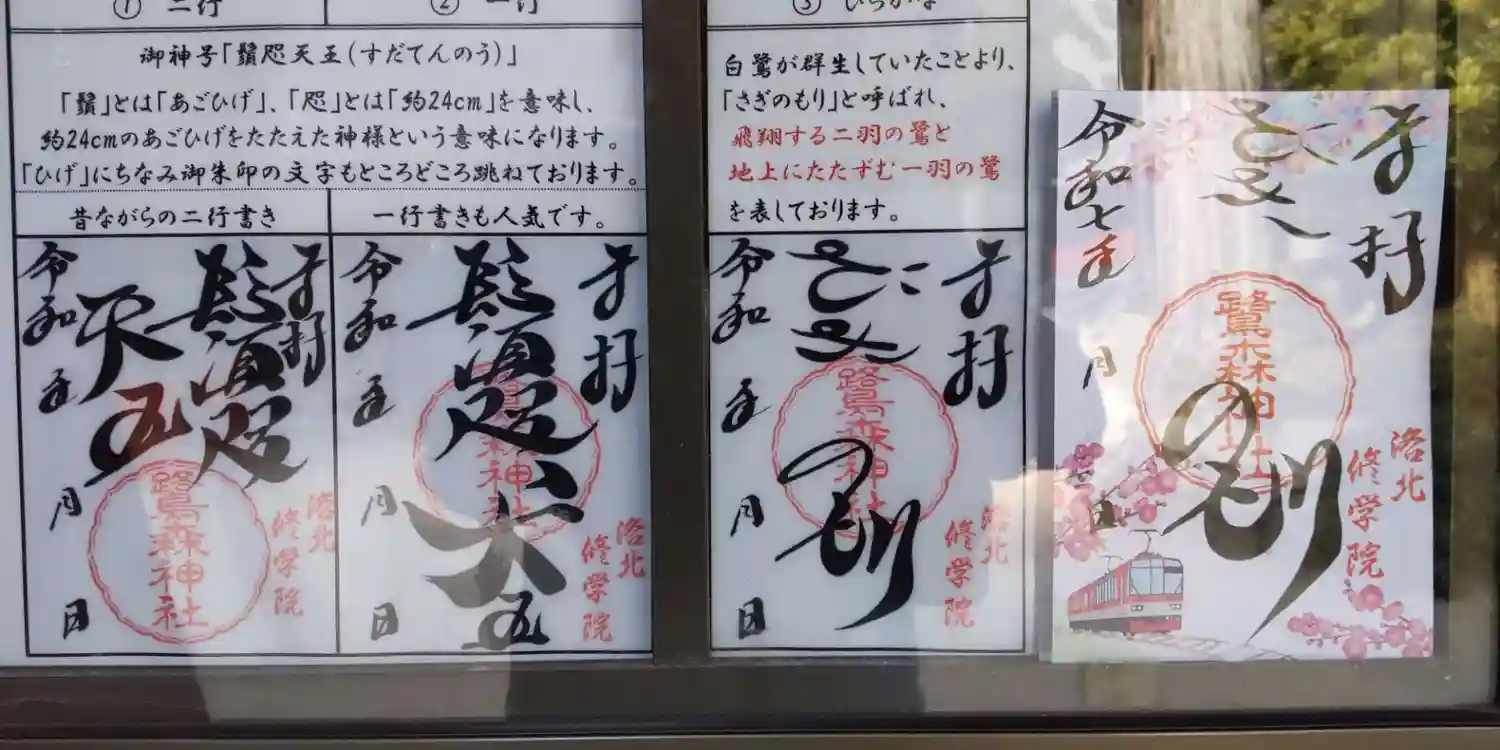 ① 二行
② 一行
御神号「鬚咫天王(すだてんのう)」
「鬚」とは「あごひげ」、「咫」とは「約24cm」を意味し、
約24cmのあごひげをたたえた神様という意味になります。
「ひげ」にちなみ御朱印の文字もところどころ跳ねております。
昔ながらの二行書き
一行書きも人気です。
奉拝
鬚咫
天王
令和 年 月 日
鷺森神社
洛北
修学院
奉拝
鬚咫天王
令和 年 月 日
鷺森神社
洛北
修学院
③ ひらがな
白鷺が群生していたことより、
「さぎのもり」と呼ばれ、
飛翔する二羽の鷺と
地上にたたずむ一羽の鷺
を表しております。
奉拝
さぎのもり
令和 年 月 日
鷺森神社
洛北
修学院
奉拝
さぎのもり
令和七年 月 日
鷺森神社
洛北
修学院